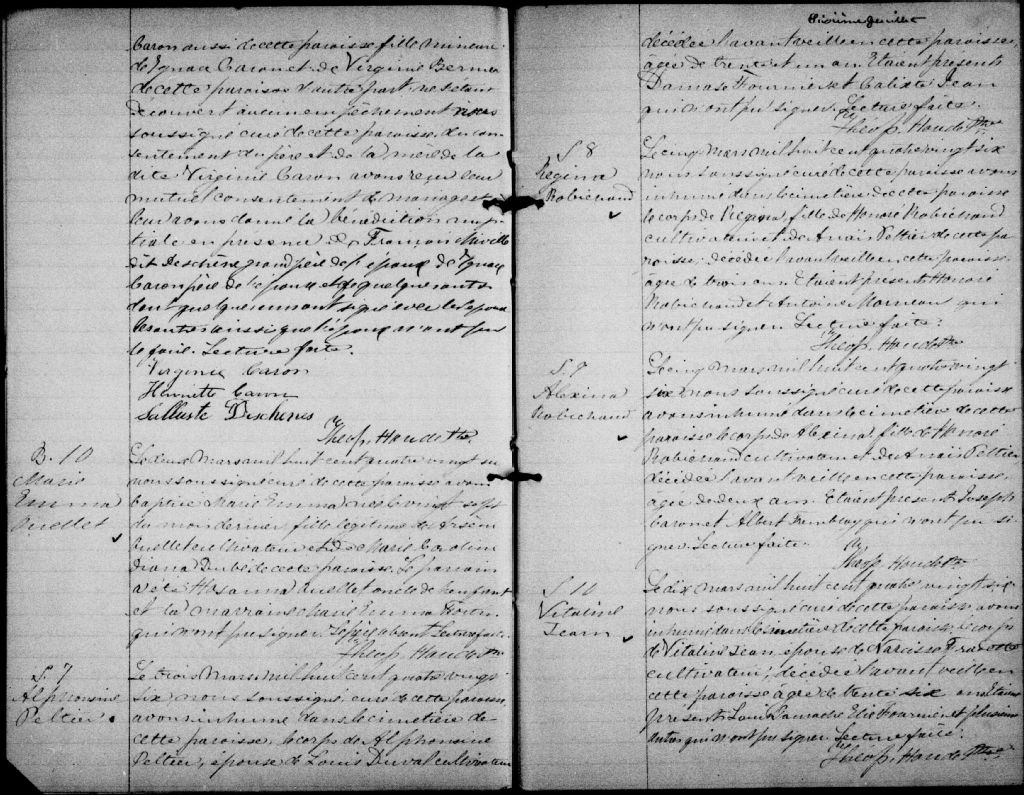 Caron aussi de cette paroisse fille mineure
de Ignace Caron et de Virginie Bernier
de cette paroisse d'autre part; ne s'étant
découvert aucun empêchement nous
soussigné curé de cette paroisse, du con
sentement du père et de la mère de la
dite Virginie Caron avons reçu leur
mutuel consentement de mariage et
leur avons donné la bénédiction nup
tiale en présence de François Miville
dit Deschène grand père de l'époux de Ignace
Caron père de l'épouse et de quelques parents
dont quelques uns ont signé avec l'épouse
les autres aussi que l'époux n'ont pu
le faire. Lecture faite.
Virginie Caron
Henriette Caron
Salluste Deschenes
Théop. Houde Ptre
B. 10
Marie
Emma
Ouellet
Le deux Mars mil huit cent quatre vingt six
nous soussigné curé de cette paroisse avons
baptisé Marie Emma née le vingt sept
du mois dernier, fille légitime de Arsène
Ouellet cultivateur et de Marie Caroline
Diana Dubé de cette paroisse. Le parrain
a été Hosanna Ouellet oncle de l'enfant
et la marraine Marie Emma
qui n'ont pu signer. Le père absent Lecture faite.
Théop. Houde Ptre
S. 7
Alphonsine
Peltier.
Le trois Mars mil huit cent quatre vingt
six, nous soussigné, curé de cette paroisse,
avons inhumé dans le cimetière de
cette paroisse, le corps de Alphonsine
Peltier, épouse de Louis Duval cultivateur
Sixième feuillet
décédée l'avant veille en cette paroisse,
âgée de trente et un an. Etaient présents
Damase Fournier et Calixte Jean
qui n'ont pu signer. Lecture faite.
Théop. Houde Ptre
S 8
Régina
Robichaud
Le cinq Mars mil huit cent quatre vingt six
nous soussigné curé de cette paroisse avons
inhumé dans le cimetière de cette paroisse
le corps de Régina, fille de Honoré Robichaud
cultivateur et de Anaïs Peltier de cette pa
roisse, décédée l'avant veille en cette paroisse
âgée de trois ans. Etaient présents Honoré
Robichaud et Antoine Morneau qui
n'ont pu signer. Lecture faite.
Théop. Houde Ptre
S. 9
Alexina
Robichaud
Le cinq Mars mil huit cent quatre vingt
six, nous soussigné curé de cette paroisse
avons inhumé dans le cimetière de cette
paroisse le corps de Alexina, fille de Honoré
Robichaud cultivateur et de Anaïs Peltier
décédée l'avant veille en cette paroisse,
âgée de deux ans. Etaient présents Joseph
Caron et Albert Tremblay qui n'ont pu si
gner. Lecture faite.
Théop. Houde Ptre
S. 10
Vitaline
Jean
Le dix Mars mil huit cent quatre vingt six
nous soussigné curé de cette paroisse avons
inhumé dans le cimetière de cette paroisse, le corps
de Vitaline Jean, épouse de Narcisse
cultivateur, décédée l'avant veille en
cette paroisse âgée de trente six ans Etaient
présents Louis Gamache Elie Fournier et plusieurs
autres qui n'ont pu signer. Lecture faite.
Théop. Houde Ptre